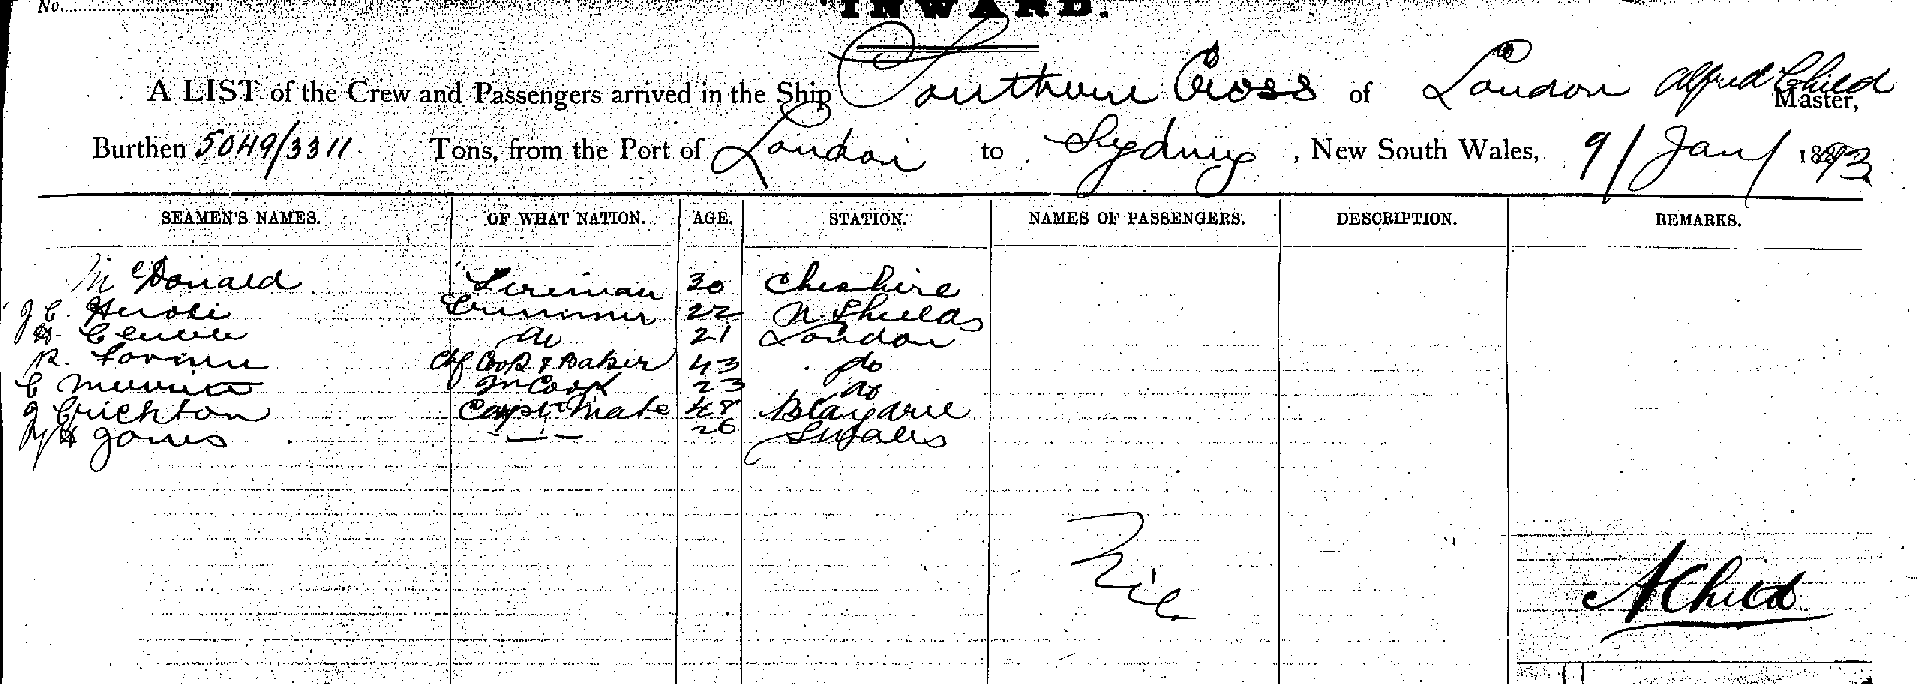 No.
INWARD.
A LIST of the Crew and Passengers arrived in the Ship Southern Cross of London Alfred Child Master,
Burthen 5049/3311 Tons, from the Port of London to Sydney, New South Wales, 9/Jan/ 1893
SEAMEN'S NAMES. OF WHAT NATION. AGE. STATION. NAMES OF PASSENGERS. DESCRIPTION. REMARKS.
McDonald Fireman 30 Cheshire
J C Trimmer 22 N Shields
21 London
R. Cook & Baker 43 do
C Cook 23 do
J Crichton Carpr Mate 48
W H Jones 26 S Wales
Nil
A Child